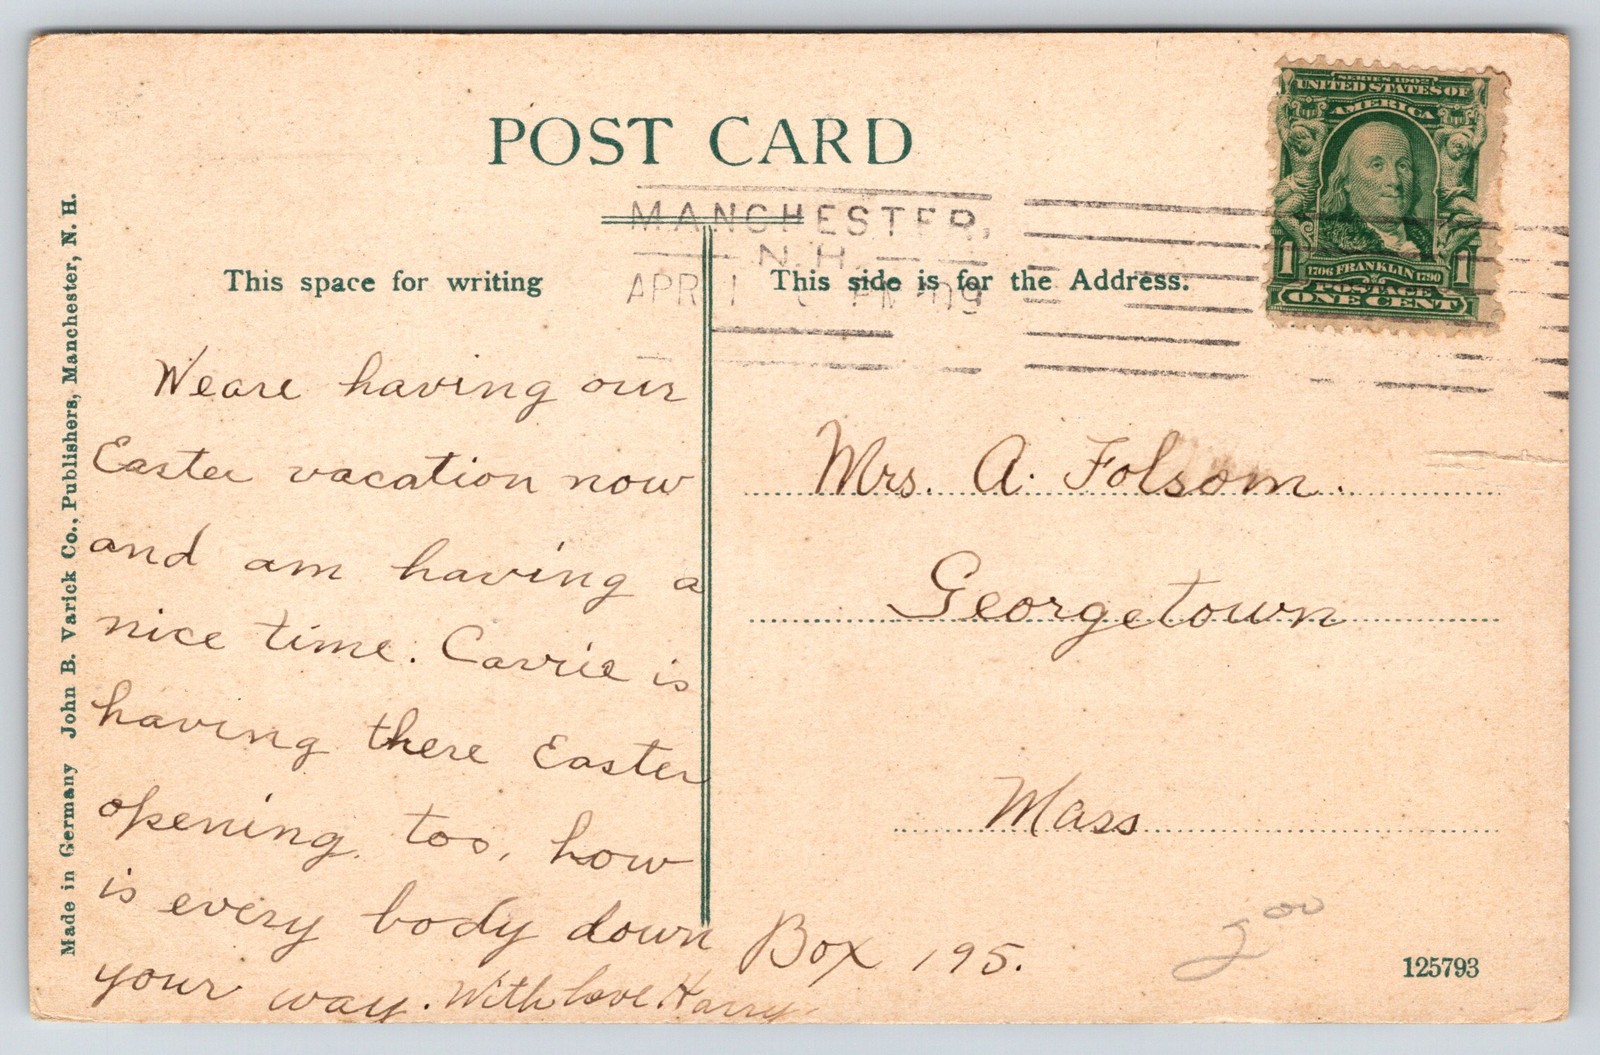 POST CARD
SERIES 1902
UNITED STATES OF
AMERICA
1706 FRANKLIN 1790
1 1
POSTAGE
ONE CENT
MANCHESTER,
N.H.
APR 1 PM '09
This space for writing
This side is for the Address.
Weare having our
Easter vacation now
and am having a
nice time. Carrie is
having there Easter
opening. too. how
is every body down
your way. With love Harry
Mrs. A. Folsom.
Georgetown
Mass
Box 195.
200
125793
Made in Germany John B. Varick Co., Publishers, Manchester, N. H.